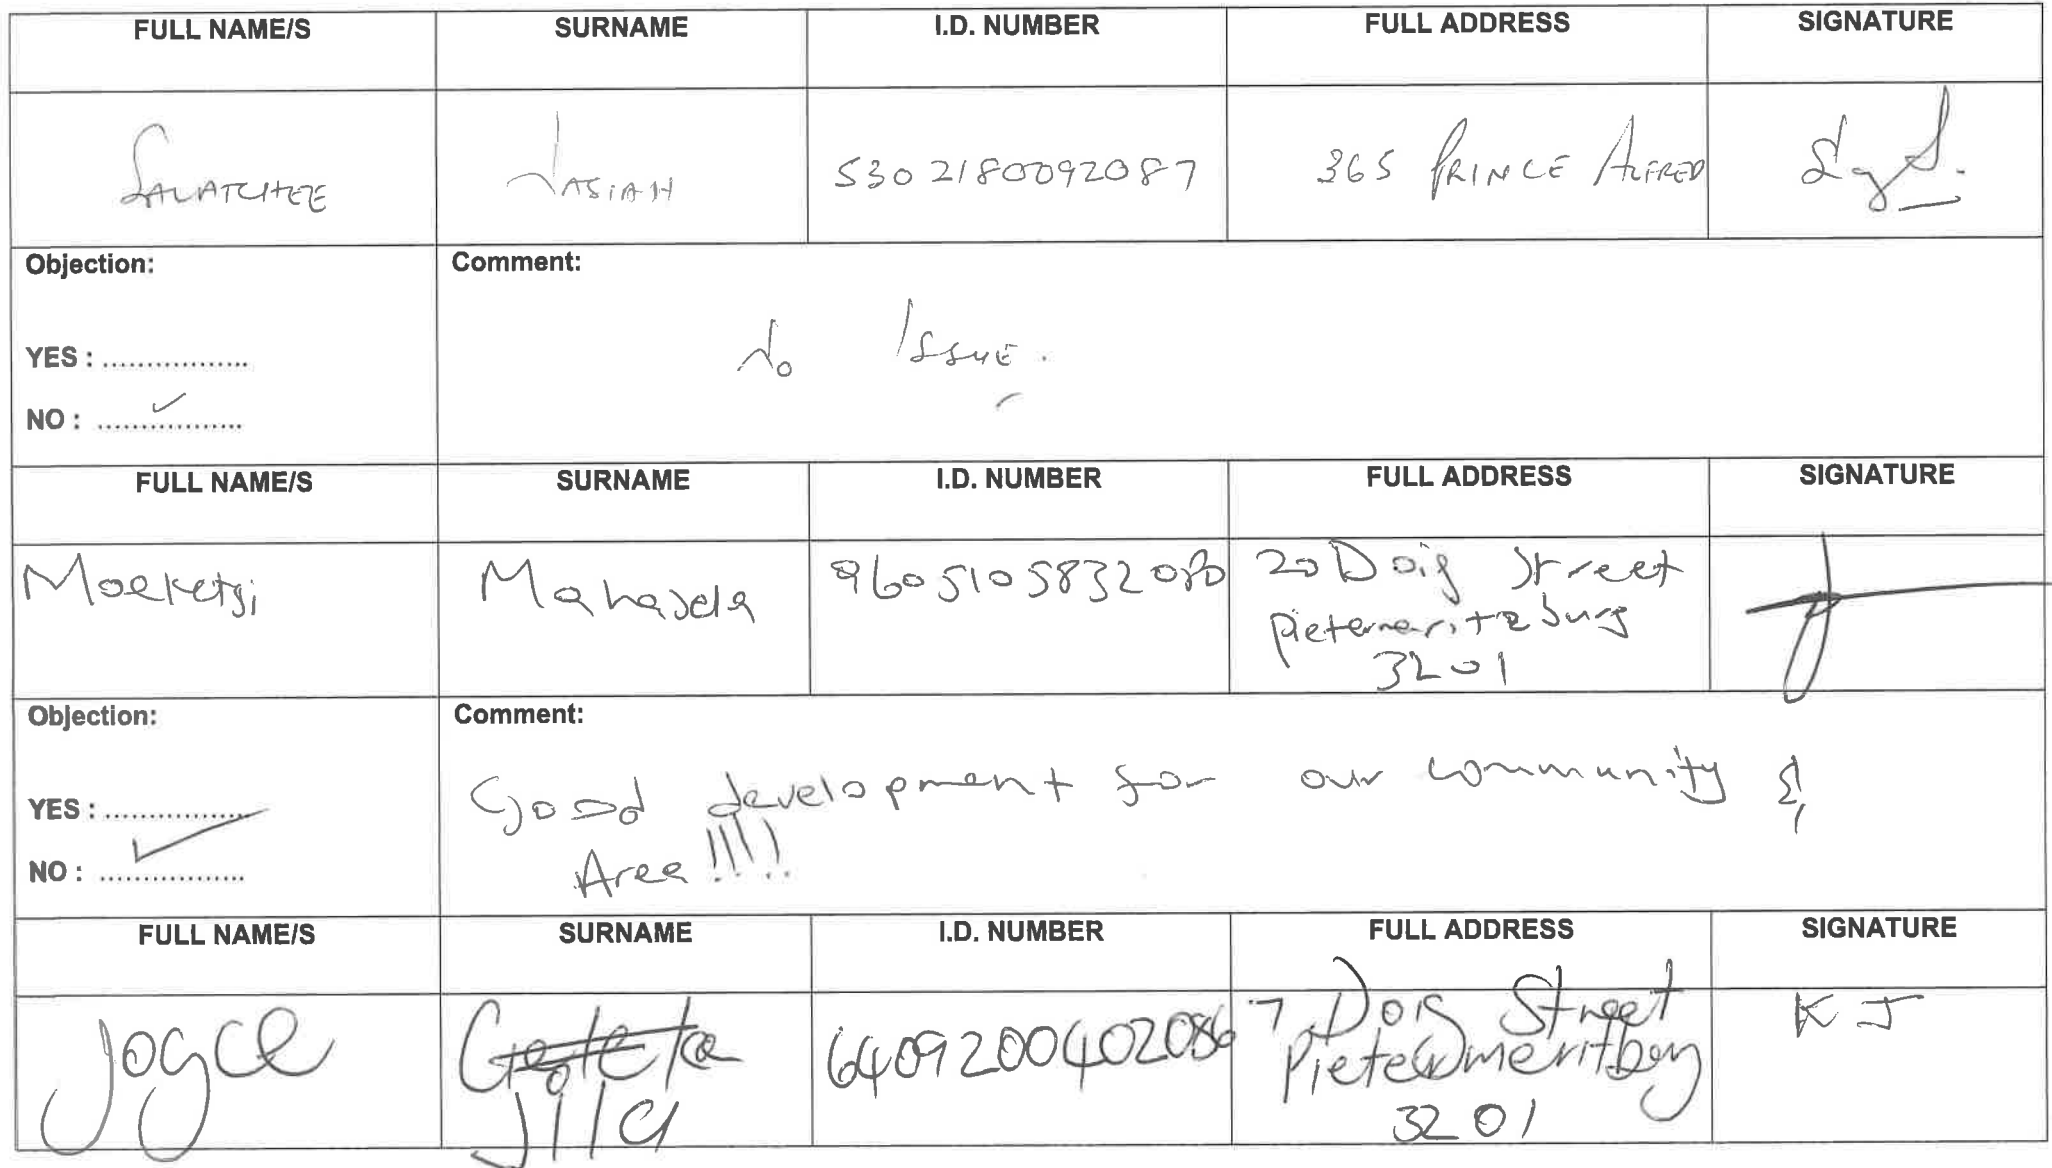 FULL NAME/S SURNAME I.D. NUMBER FULL ADDRESS SIGNATURE
5302180092087 365 PRINCE ALFRED
Objection: Comment:
No ISSUE.
YES : .................
NO : ✓ .................
FULL NAME/S SURNAME I.D. NUMBER FULL ADDRESS SIGNATURE
Moeketsi 9605105832080 20 Doig Street
Pietermaritzburg
3201
Objection: Comment:
Good development for our community &
YES : .................
Area !!!!
NO : ✓ .................
FULL NAME/S SURNAME I.D. NUMBER FULL ADDRESS SIGNATURE
Joyce 6409200402086 7 Doig Street K J
Jila
3201